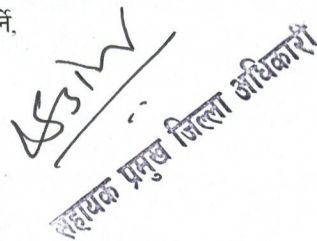 र्ने,
सहायक प्रमुख जिल्ला अधिकारी